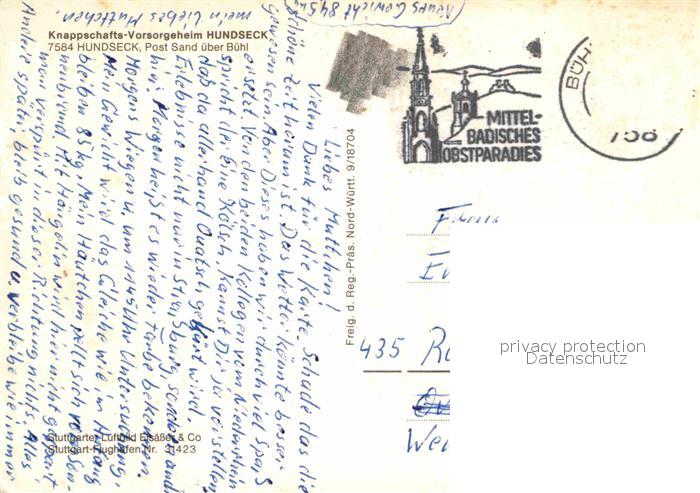 (Neues Gewicht 84,5
mein liebes Muttchen.
Knappschafts-Vorsorgeheim HUNDSECK
7584 HUNDSECK, Post Sand über Bühl
Liebes Muttchen!
Vielen Dank für die Karte. Schade das die
schöne Zeit herum ist. Das Wetter könnte besser
gewesen sein. Aber Dieses haben wir durch viel Spaß
ersetzt. Von den beiden Kollegen vom Niederrhein
spricht der Eine Kölsch, kannst Dir ja vorstellen
daß da allerhand Quatsch geführt wird.
Erlebnisse nicht nur in Straßburg, sondern auch
hier. Morgen heißt es wieder Farbe bekennen.
Morgens Wiegen u. um 11 45 Uhr Untersuchung,
Mein Gewicht wird das Gleiche wie im Anfang
bleiben 85 kg. Mein Häutchen pellt sich
Mit wird hier nicht gespart
man verspürt in dieser Richtung nichts. Alles
Andere später, bleib gesund u. verbleibe wie immer
Stuttgarter Luftbild Elsäßer & Co
Stuttgart-Flughafen Nr. 31423
Freig. d. Reg.-Präs. Nord-Württ. 9/18704
MITTEL-
BADISCHES
OBSTPARADIES
BÜH
758
435
privacy protection
Datenschutz